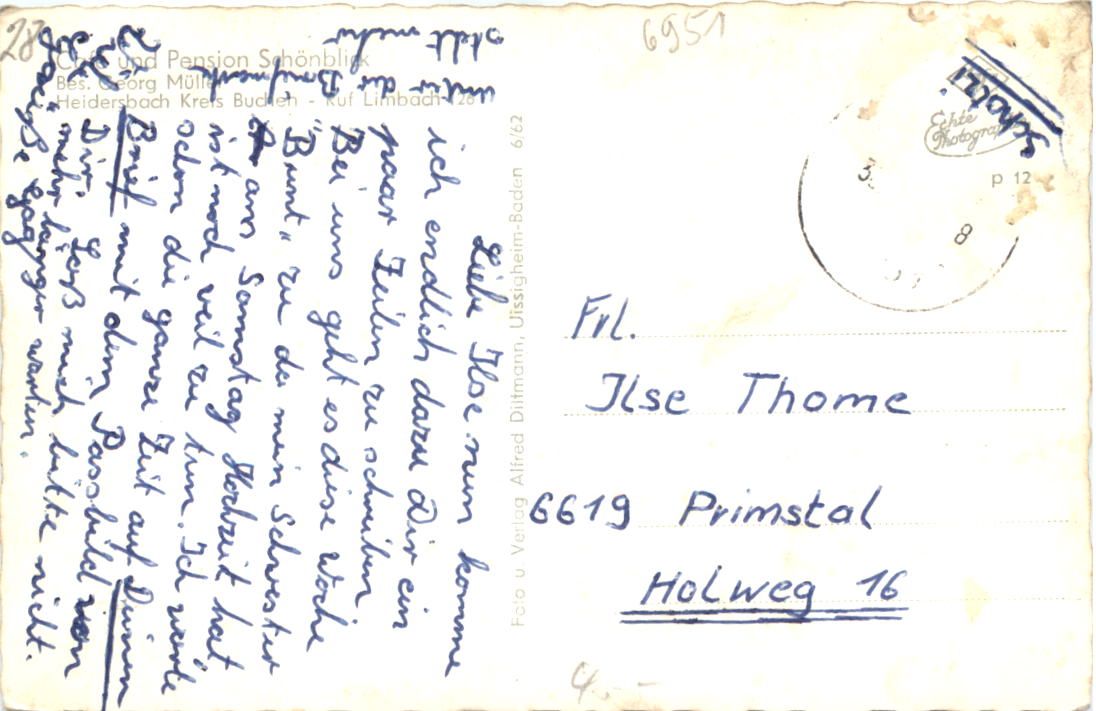 28
6951
Café und Pension Schönblick
Bes. Georg Müller
Heidersbach Kreis Buchen - Ruf Limbach 28
steht mehr
unter der Briefmarke
Liebe Ilse nun komme
ich endlich dazu Dir ein
paar Zeilen zu schreiben
Bei uns geht es diese Woche
"Bunt" zu da mein Schwester
am Samstag Hochzeit hat
ist noch veil zu tun. Ich warte
schon die ganze Zeit auf Deinen
Brief mit dem Passbild von
Dir. Laß mich bitte nicht
mehr länger warten.
Foto u. Verlag Alfred Diltmann, Uissigheim-Baden 6/62
Echte
Photograph
p 12
3.
8
Frl.
Ilse Thome
6619 Primstal
Holweg 16
4.-